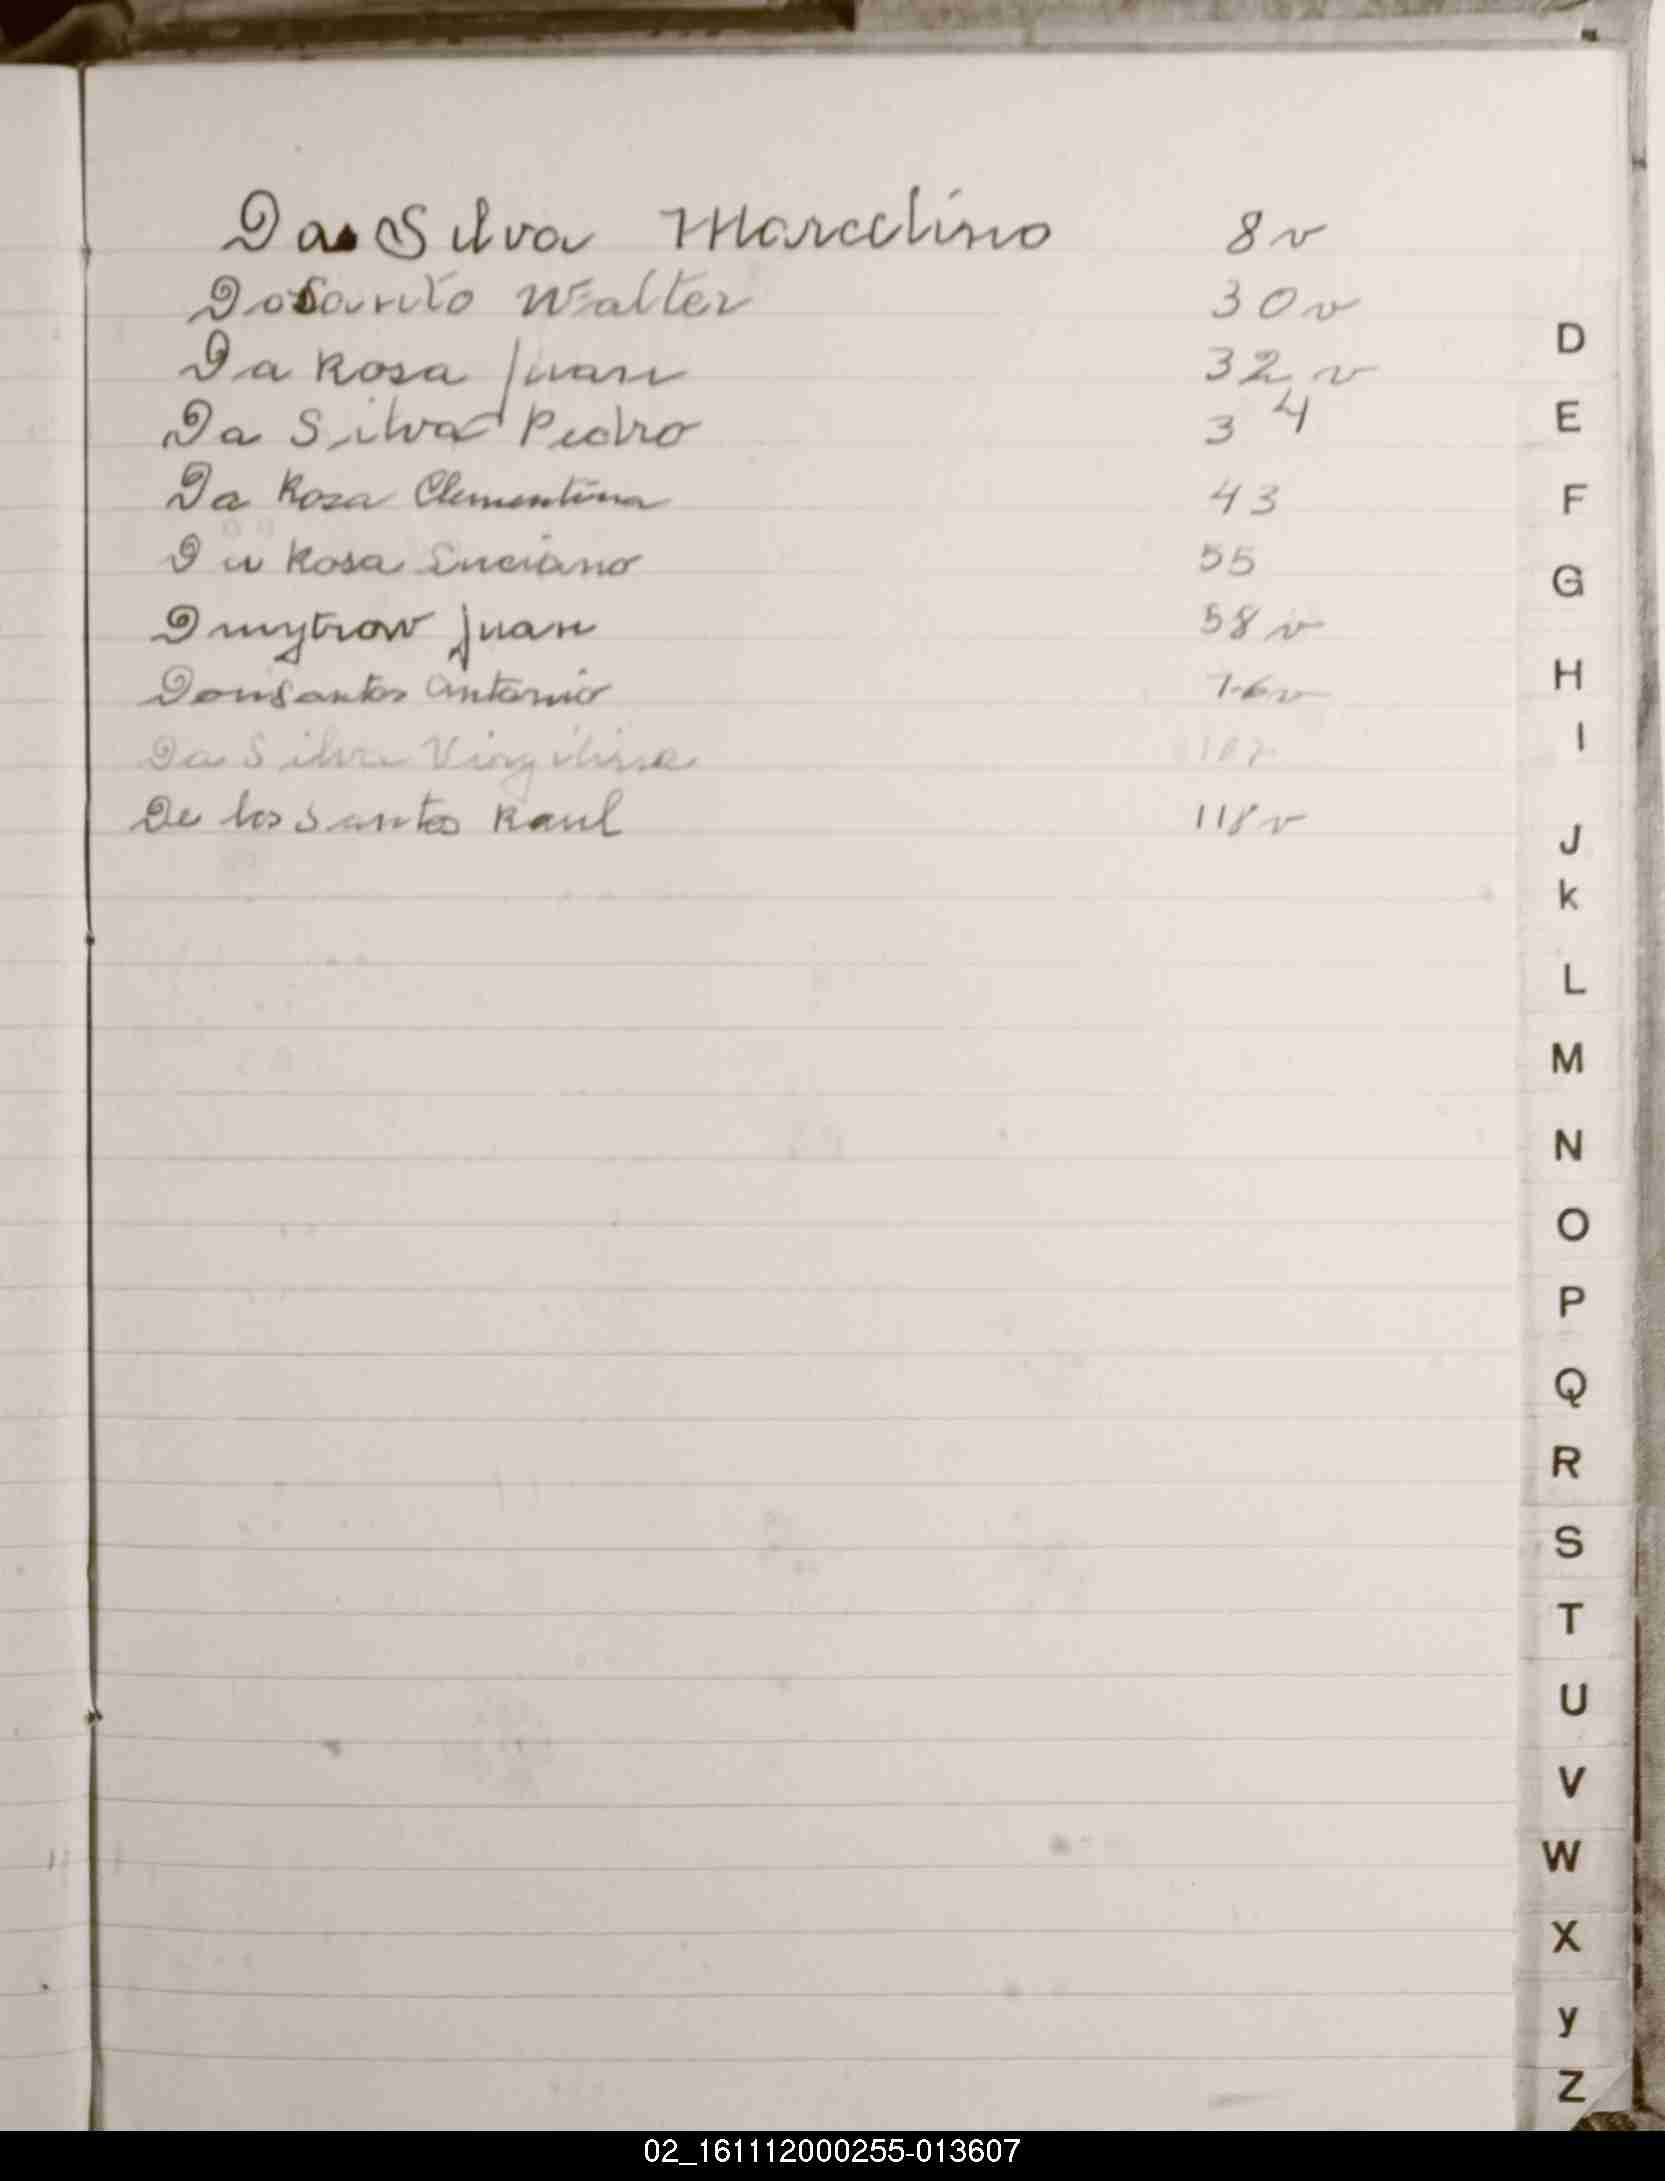 Da Silva Marcelino 8v
Dosanto Walter 30v
Da Rosa Juan 32v
Da Silva Pedro 34
Da Rosa Clementina 43
Da Rosa Luciano 55
Dmytrow Juan 58v
Antonio 76v
Da Silva
De los Santos Raul 118v
D
E
F
G
H
I
J
k
L
M
N
O
P
Q
R
S
T
U
V
W
X
y
Z
02_161112000255-013607